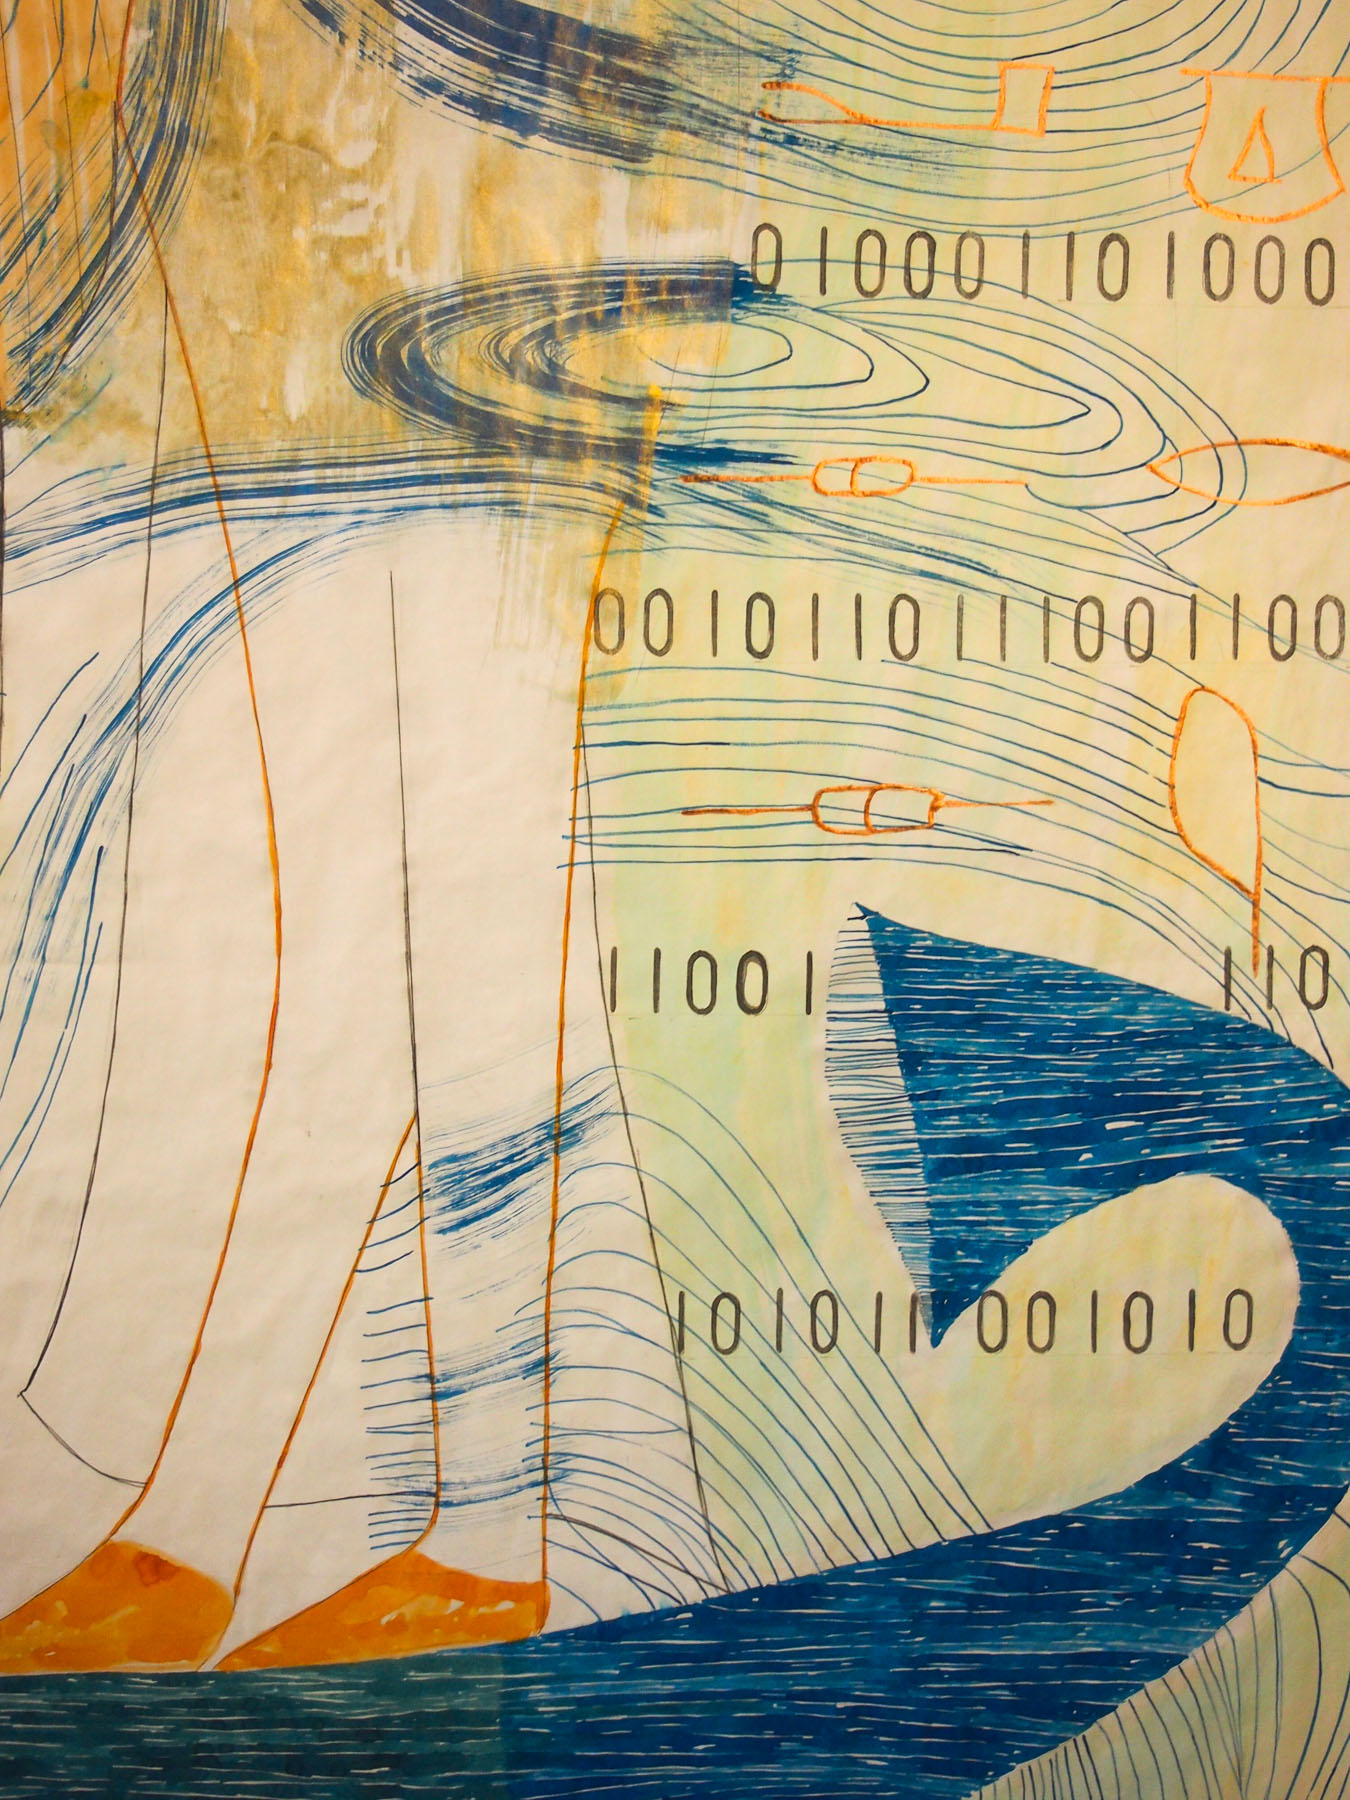 010001101000
0010110111001100
11001 110
101011 001010